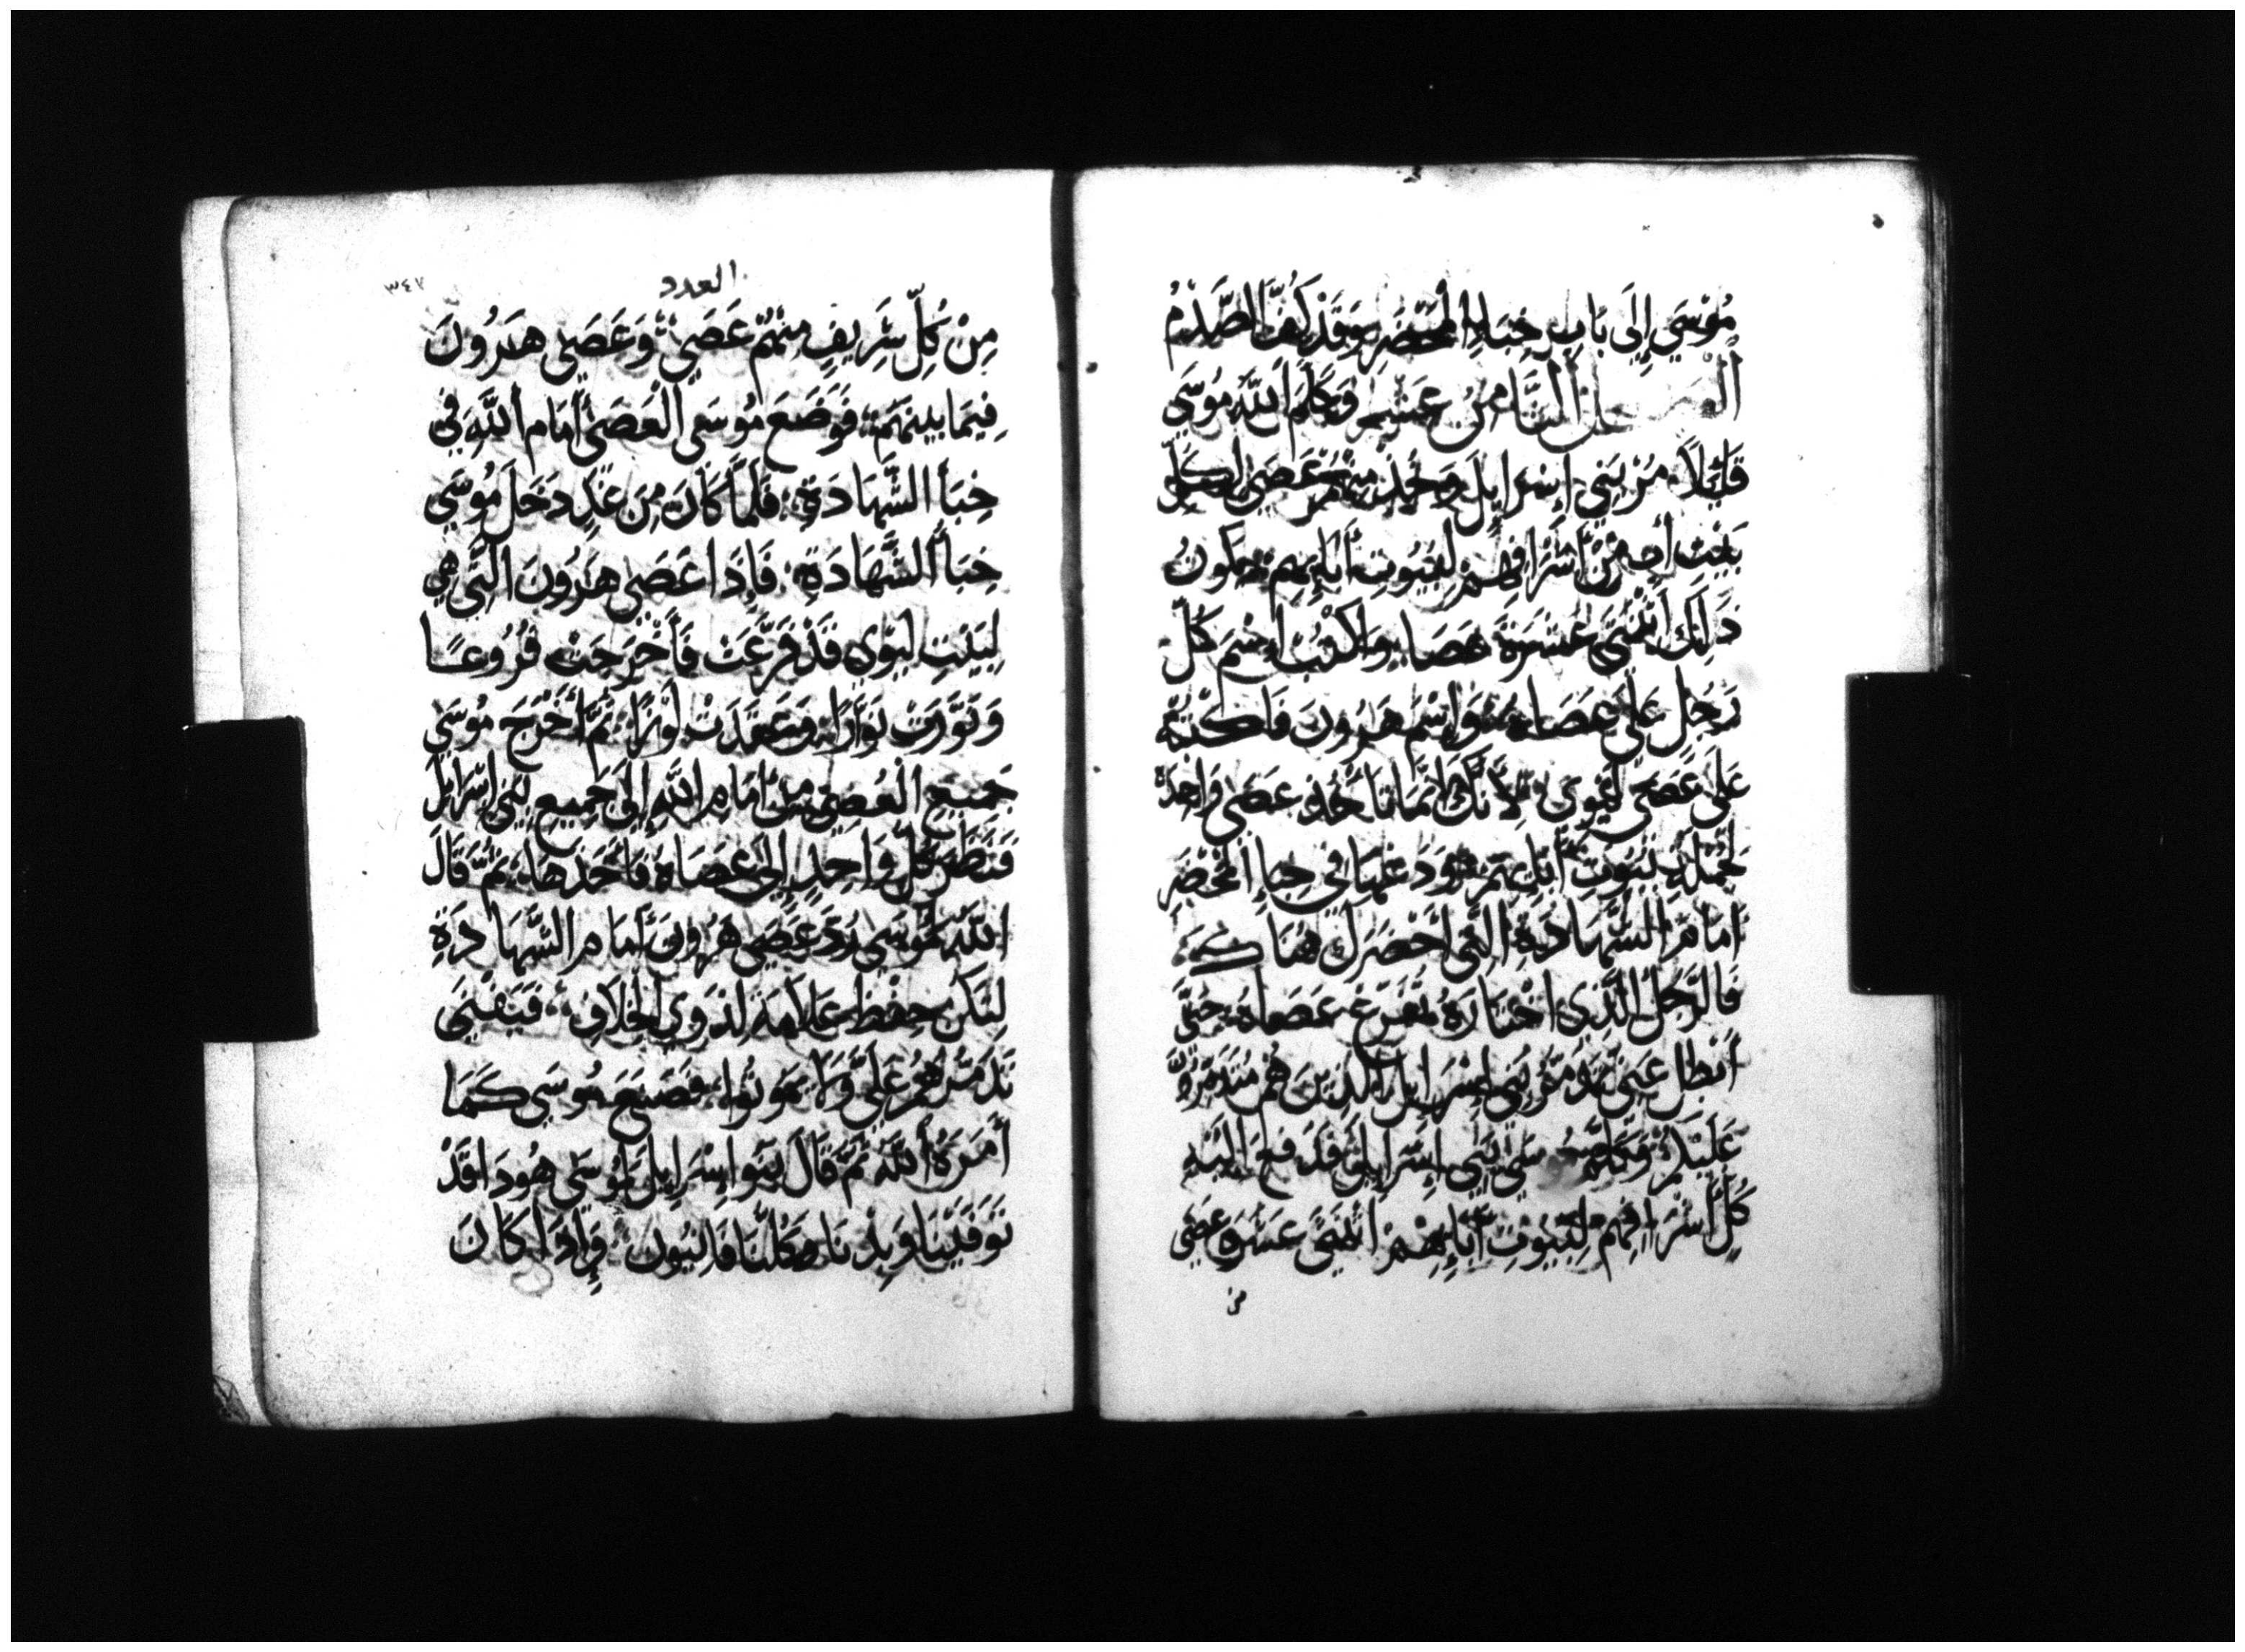 مُوْسَي إِلَي بَابِ خِبَاءِ المَحْضَرِ وَقَدْ كَفَّ الصَّدْمُ
الفصل الثَّامِنُ عَشَر وَكَلَّمَ اللَّهُ مُوسَي
قَائِلاً مُرْ بَنِي إِسْرَايِلَ وَخُذْ مِنْهُمْ عَصَي لِكُلِّ
بَيْتِ أَبٍ مِنْ أَشْرَافِهِمْ لِبُيُوتِ أَبَايِهِمْ يَكُونُ
ذَلِكَ اثْنَتَيْ عَشَرَةَ عَصَا وَاكْتُبْ اِسْمَ كُلِّ
رَجُلٍ عَلَي عَصَاهُ وَاسْمَ هَرُونَ فَاكْتُبْهُ
عَلَي عَصَي لِيْوِي لِأَنَّكَ إِنَّمَا تَأْخُذُ عَصَي وَاحِدَةً
لِجُمْلَةِ بُيُوتِ أَبَايِهِمْ وَدَعْهَا فِي خِبَاءِ المَحْضَرِ
أَمَامَ الشَّهَادَةِ الَّتِي أَحْضَرَكَ هُنَاكَ
فَالرَّجُلُ الَّذِي اخْتَارَهُ تَفَرَّعَ عَصَاهُ حَتَّى
أُبْطِلَ عَنِّي تَذَمُّرَ بَنِي إِسْرَايِلَ الَّذِينَ هُمْ مُتَذَمِّرُونَ
عَلَيْكُمْ وَكَلَّمَ مُوسَي بَنِي إِسْرَايِلَ فَدَفَعَ إِلَيْهِ
كُلُّ أَشْرَافِهِمْ لِبُيُوتِ أَبَايِهِمْ اثْنَتَيْ عَشَرَةَ عَصَي
من
العدد
٣٤٧
مِنْ كُلِّ شَرِيفٍ مِنْهُمْ عَصَي وَعَصَي هَرُونَ
فِيمَا بَيْنَهُمْ فَوَضَعَ مُوسَي الْعَصَي أَمَامَ اللَّهِ فِي
خِبَأ الشَّهَادَةِ فَلَمَّا كَانَ مِنَ غَدٍ دَخَلَ مُوسَي
خِبَأ الشَّهَادَةِ فَإِذَا عَصَي هَرُونَ الَّتِي هِي
لِبَيْتِ لِيْوِي قَدْ فَرَّعَتْ فَأَخْرَجَتْ فُرُوعًا
وَنَوَّرَتْ نَوَّارًا وَعَقَدَتْ لَوْزًا ثُمَّ أَخْرَجَ مُوسَي
جَمِيعَ الْعِصِيِّ مِنْ أَمَامِ اللَّهِ إِلَي جَمِيعِ بَنِي إِسْرَايِلَ
فَنَظَرَ كُلُّ وَاحِدٍ إِلَي عَصَاهُ فَأَخَذَهَا ثُمَّ قَالَ
اللَّهُ لِمُوسَي رُدَّ عَصَي هَرُونَ أَمَامَ الشَّهَادَةِ
لِتَكُنْ حِفْظَ عَلاَمَه لِذَوِي الخِلاَفِ فَيَفْنَي
تَذَمُّرُهُمْ عَلَيَّ وَلاَ يَمُوتُوا فَصَنَعَ مُوسَي كَمَا
أَمَرَهُ اللَّهُ ثُمَّ قَالَ بَنُوا إِسْرَايِلَ لِمُوسَي هُودَا قَدْ
تَوَفَّيْنَا وَبِدْنَا كُلُّنَا فَانِيُونَ وَإِذَا كَانَ